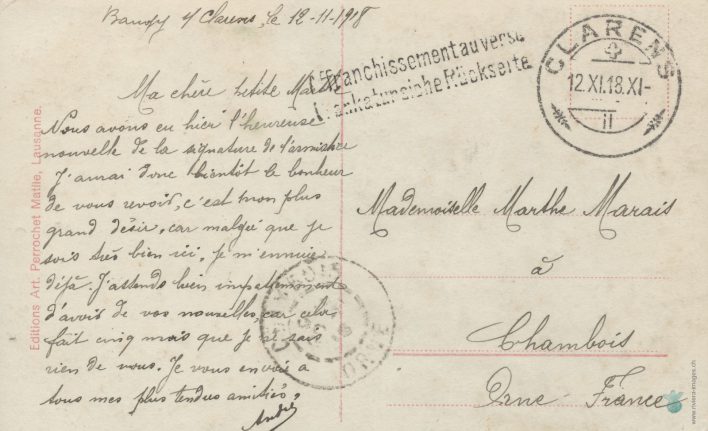 s/ Clarens, le 12-11-1918
Affranchissement au verso
Frankatur siehe Rückseite
CLARENS
12.XI.18.XI-
11
Ma chère petite Marthe
Nous avons eu hier l'heureuse
nouvelle de la signature de l'armistice
J'aurai donc bientôt le bonheur
de vous revoir, c'est mon plus
grand désir, car malgré que je
sois très bien ici, je m'ennuie
déjà. J'attends bien impatiemment
d'avoir de vos nouvelles, car cela
fait cinq mois que je ne sais
rien de vous. Je vous envoie
tous mes plus tendres amitiés.
André
Mademoiselle Marthe Marais
à
Chambois
Orne - France
ORNE
Editions Art. Perrochet Matile, Lausanne.
www.riviera-images.ch